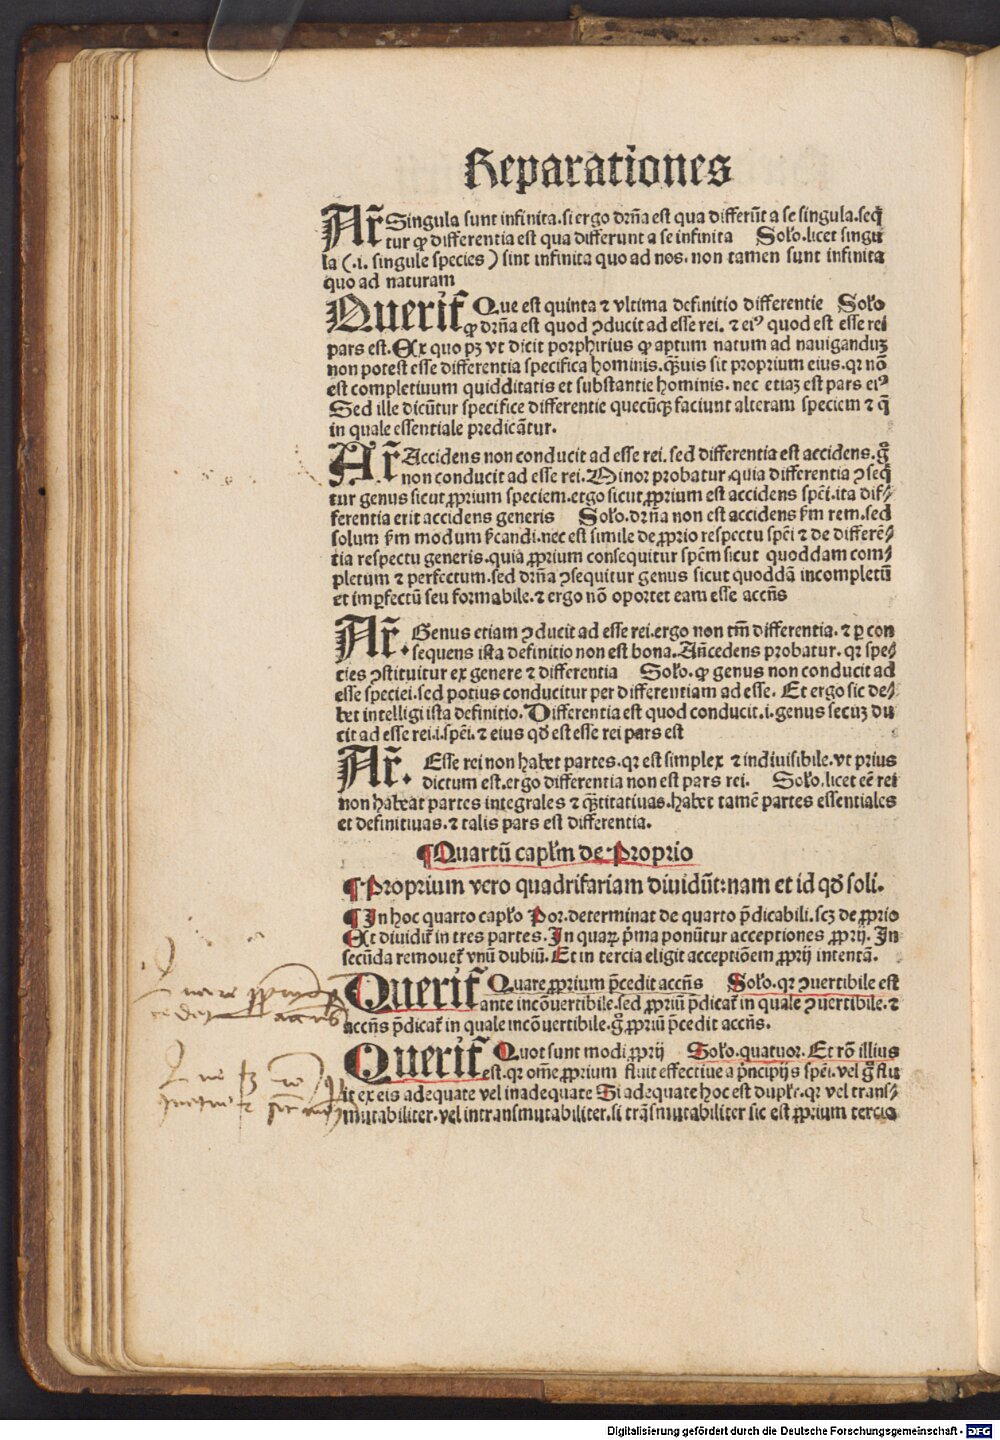 Reparationes
Ar̃ Singula sunt infinita. si ergo dr̃ña est qua differũt a se singula. seq̃
tur ꝙ differentia est qua differunt a se infinita Solo. licet singu
la (.i. singule species) sint infinita quo ad nos. non tamen sunt infinita
quo ad naturam
Querit̃ Que est quinta ⁊ vltima definitio differentie Solo
ꝙ dr̃ña est quod ꝯducit ad esse rei. ⁊ eiꝰ quod est esse rei
pars est. Ex quo pꝫ vt dicit porphirius ꝙ aptum natum ad nauiganduꝫ
non potest esse differentia specifica hominis. q̃uis sit proprium eius. qꝛ nõ
est completiuum quidditatis et substantie hominis. nec etiaꝫ est pars eiꝰ
Sed ille dicũtur specifice differentie quecũqꝫ faciunt alteram speciem ⁊ q̃
in quale essentiale predicãtur.
Ar̃ Accidens non conducit ad esse rei. sed differentia est accidens. g̊
non conducit ad esse rei. Minor probatur. quia differentia ꝯseq̃
tur genus sicut ꝓprium speciem. ergo sicut ꝓprium est accidens spẽi. ita dif⸗
ferentia erit accidens generis Solo. dr̃ña non est accidens ẜm rem. sed
solum ẜm modum p̃candi. nec est simile de ꝓprio respectu spẽi ⁊ de differẽ⸗
tia respectu generis. quia ꝓprium consequitur spẽm sicut quoddam com⸗
pletum ⁊ perfectum. sed dr̃ña ꝯsequitur genus sicut quoddã incompletũ
et imꝑfectũ seu formabile. ⁊ ergo nõ oportet eam esse accñs
Ar̃. Genus etiam ꝯducit ad esse rei. ergo non tm̃ differentia. ⁊ ꝑ con
sequens ista definitio non est bona. Añcedens probatur. qꝛ spe⸗
cies ꝯstituitur ex genere ⁊ differentia Solo. ꝙ genus non conducit ad
esse speciei. sed potius conducitur per differentiam ad esse. Et ergo sic de⸗
bet intelligi ista definitio. Differentia est quod conducit. i. genus secuꝫ du
cit ad esse rei. i. spẽi. ⁊ eius qđ est esse rei pars est
Ar̃. Esse rei non habet partes. qꝛ est simplex ⁊ indiuisibile. vt prius
dictum est. ergo differentia non est pars rei. Solo. licet eẽ rei
non habeat partes integrales ⁊ q̃titatiuas. habet tamẽ partes essentiales
et definitiuas. ⁊ talis pars est differentia.
¶Quartũ caplm̃ de Proprio
¶Proprium vero quadrifariam diuidũt: nam et id qđ soli.
¶In hoc quarto caplo Por. determinat de quarto p̃dicabili. scꝫ de ꝓprio
Et diuidit̃ in tres partes. In quaꝝ p̃ma ponũtur acceptiones ꝓprij. In
secũda remouet̃ vnũ dubiũ. Et in tercia eligit acceptiõem ꝓprij intentã.
Querit̃ Quare ꝓprium p̃cedit accñs Solo. qꝛ ꝯuertibile est
ante incõuertibile. sed ꝓpriũ p̃dicat̃ in quale ꝯuertibile. ⁊
accñs p̃dicat̃ in quale incõuertibile. g̊ ꝓpriũ p̃cedit accñs.
Querit̃ Quot sunt modi ꝓprij Solo. quatuor. Et rõ illius
est. qꝛ om̃e ꝓprium fluit effectiue a p̃ncipijs spẽi. vel g̊ flu
it ex eis adequate vel inadequate Si adequate hoc est duplr̃. qꝛ vel trans⸗
mutabiliter. vel intransmutabiliter. si trãsmutabiliter sic est ꝓprium tercio
Digitalisierung gefördert durch die Deutsche Forschungsgemeinschaft - DFG